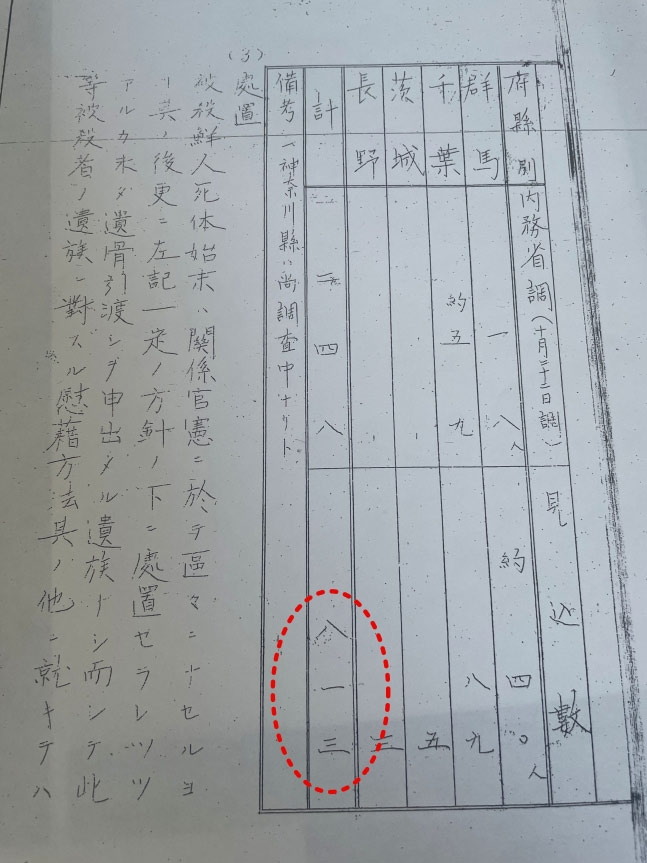 府縣別 内務省調(十月二十二日調) 見込數
群馬 一八人 約四〇人
千葉 約五九 八九
茨城 五
長野 三
計 二四八 八一三
備考 一神奈川縣ハ尚調査中ナリト
(3)
處置
被殺鮮人死体始末ハ關係官憲ニ於テ區々ニナセルヨ
リ其ノ後更ニ左記一定ノ方針ノ下ニ處置セラレツツ
アルカ未タ遺骨引渡シヲ申出タル遺族ナシ而シテ此
等被殺者ノ遺族ニ對スル慰藉方法其ノ他ニ就キテハ